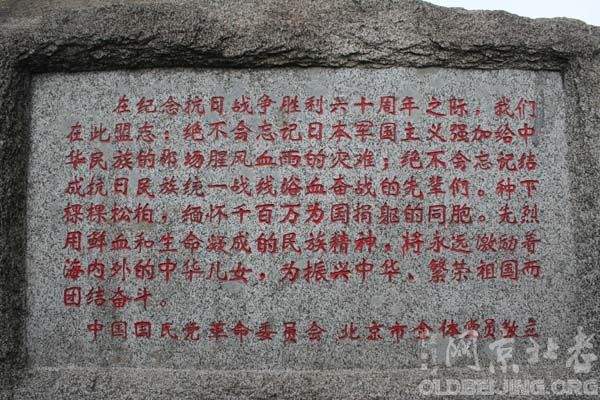 在纪念抗日战争胜利六十周年之际，我们
在此盟志：绝不会忘记日本军国主义强加给中
华民族的那场腥风血雨的灾难；绝不会忘记结
成抗日民族统一战线浴血奋战的先辈们。种下
棵棵松柏，缅怀千百万为国捐躯的同胞。先烈
用鲜血和生命凝成的民族精神，将永远激励着
海内外的中华儿女，为振兴中华、繁荣祖国而
团结奋斗。
中国国民党革命委员会 北京市全体党员敬立
網京北老
OLDBEIJING.ORG